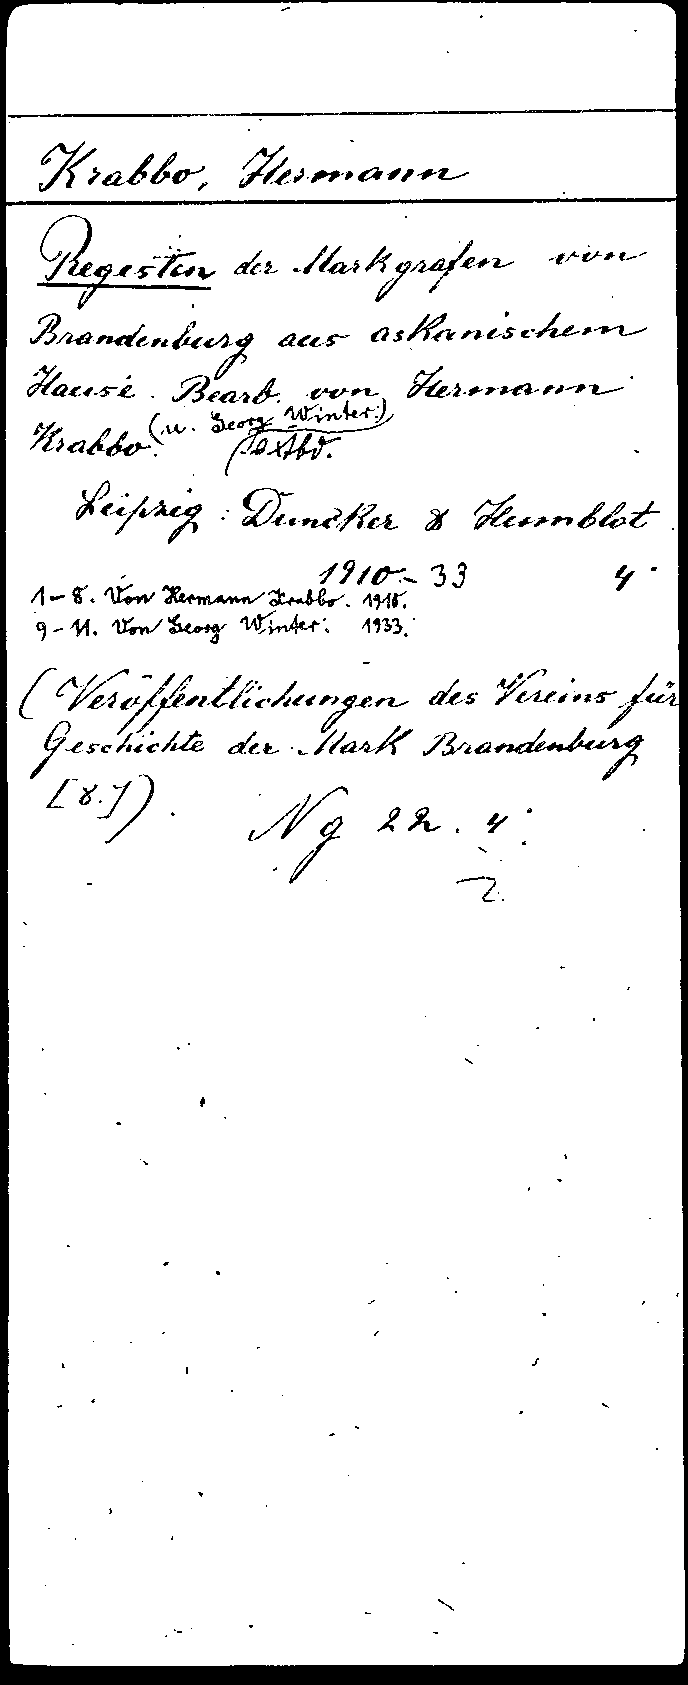 Krabbo, Hermann
Regesten der Markgrafen von
Brandenburg aus askanischem
Hause. Bearb. von Hermann
(u. Georg Winter.)
Krabbo. Textbd.
Leipzig: Duncker & Humblot
1910-33 4°
1-8. Von Hermann Krabbo. 1910.
9-11. Von Georg Winter. 1933.
(Veröffentlichungen des Vereins für
Geschichte der Mark Brandenburg
[8.]).
Ng 22. 4°